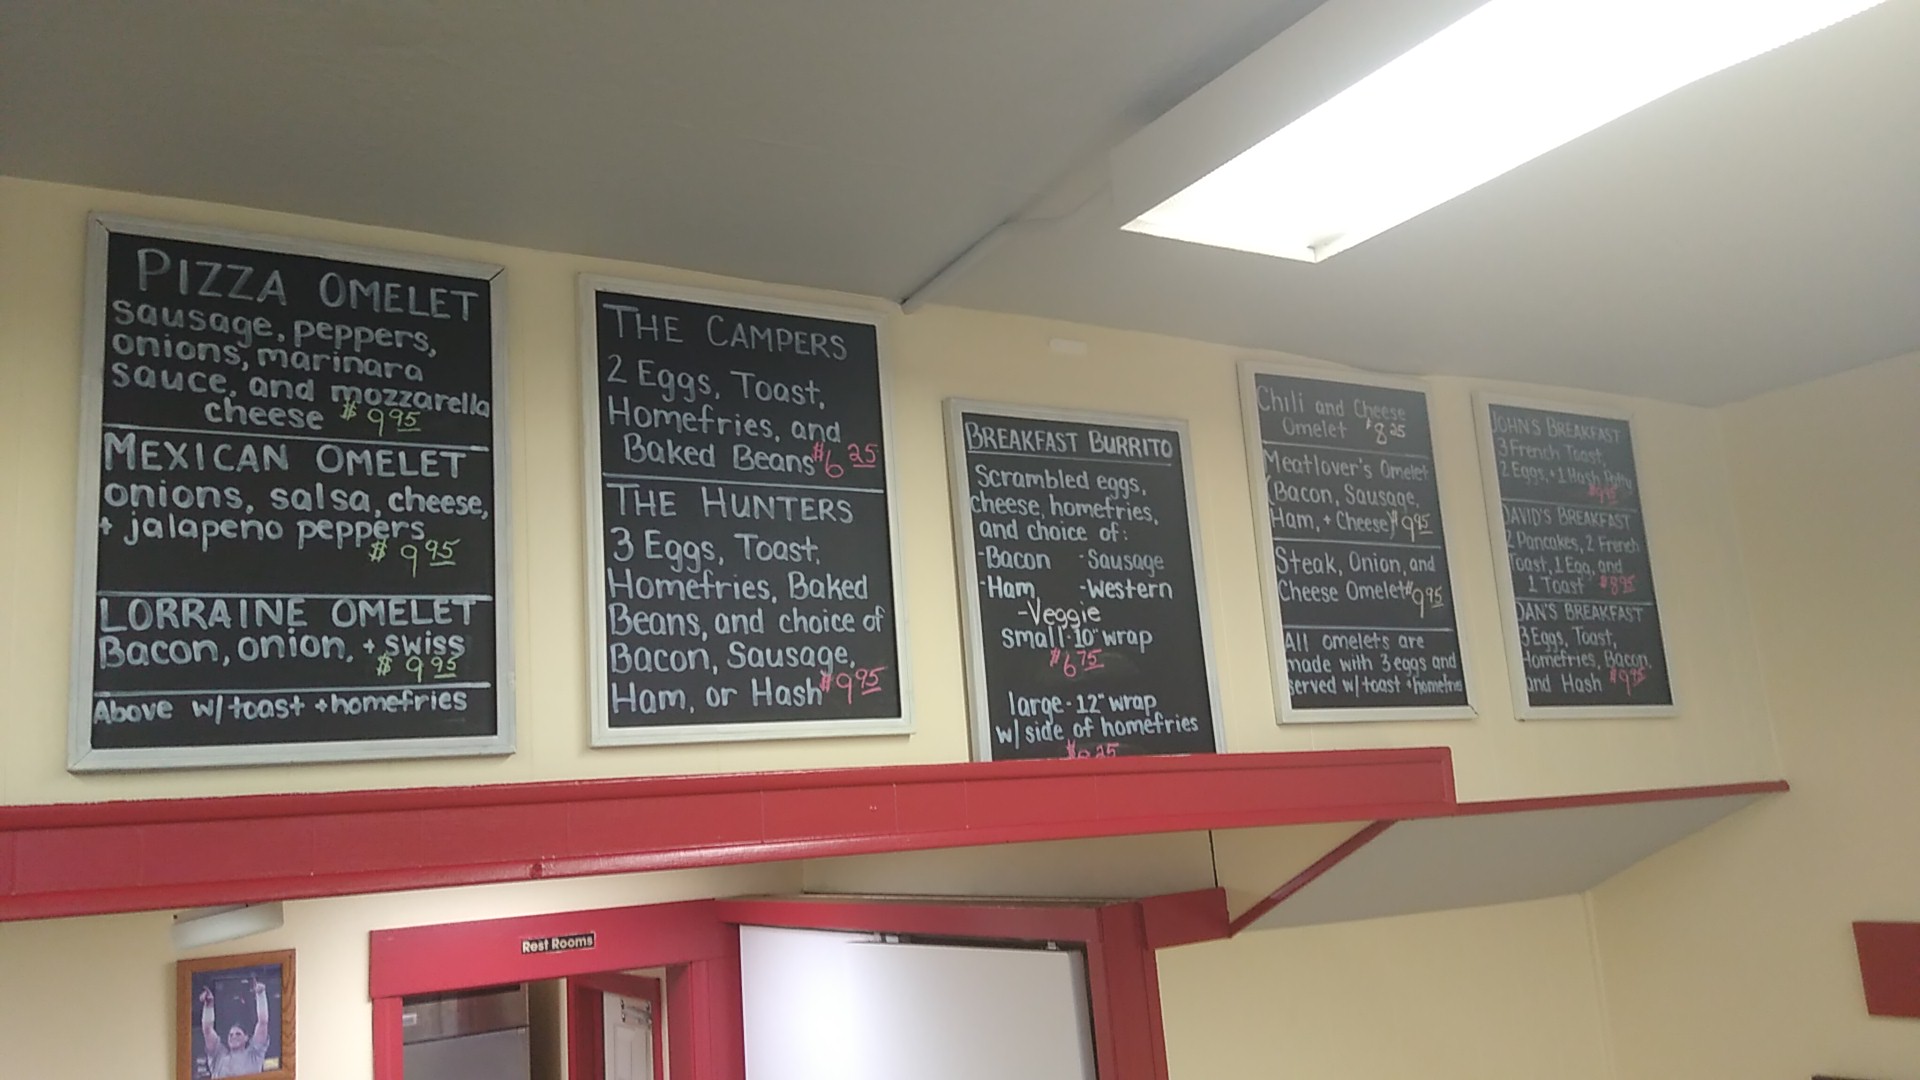 PIZZA OMELET
sausage, peppers,
onions, marinara
sauce, and mozzarella
cheese $9.95
MEXICAN OMELET
onions, salsa, cheese,
+ jalapeno peppers
$9.95
LORRAINE OMELET
Bacon, onion, + swiss
$9.95
Above w/toast + homefries
THE CAMPERS
2 Eggs, Toast,
Homefries, and
Baked Beans $6.25
THE HUNTERS
3 Eggs, Toast,
Homefries, Baked
Beans, and choice of
Bacon, Sausage,
Ham, or Hash $9.95
BREAKFAST BURRITO
Scrambled eggs,
cheese, homefries,
and choice of:
-Bacon -Sausage
-Ham -Western
-Veggie
small-10" wrap
$6.75
large-12" wrap
w/ side of homefries
Chili and Cheese
Omelet $8.25
Meatlover's Omelet
(Bacon, Sausage,
Ham, + Cheese) $9.95
Steak, Onion, and
Cheese Omelet $9.95
All omelets are
made with 3 eggs and
served w/ toast + homefries
JOHN'S BREAKFAST
3 French Toast,
2 Eggs, + 1 Hash Patty
$9.95
DAVID'S BREAKFAST
2 Pancakes, 2 French
Toast, 1 Egg, and
1 Toast $8.95
DAN'S BREAKFAST
3 Eggs, Toast,
Homefries, Bacon,
and Hash $9.95
Rest Rooms